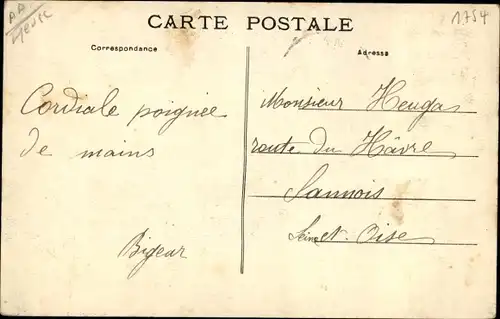 CARTE POSTALE
1754
Correspondance
Adresse
Cordiale poignée
de mains
Bigear
Monsieur Heuga
route du Hâvre
Sannois
Seine et Oise